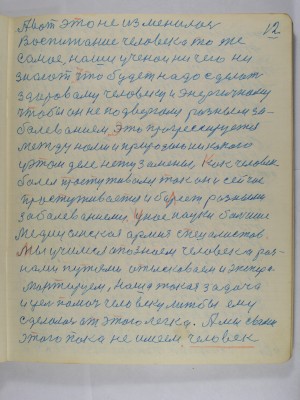 12.
А вот это не изменилось
Воспитание человека то же
самое, наши ученои ничего ни
знают что будет надо сделат
здаровому человеку и энергичному
чтобы он не подвергался разным за-
балеванием. Это прогрессируется
между нами и природаю никакого
у этом деле нету замены. Как человек
болел простуживался так он и сейчас
простуживается и болеет разными
забалеваниеми. У нас науки больше
Медицинская армия специалистов.
Мы учимся опознаем человека раз-
ными путями отыскиваем и экспри-
монтируем, наша такая задача
и цел помоч человеку штобы ему
сделалос от этого легко. А мы свами
этого пока не имеем человек